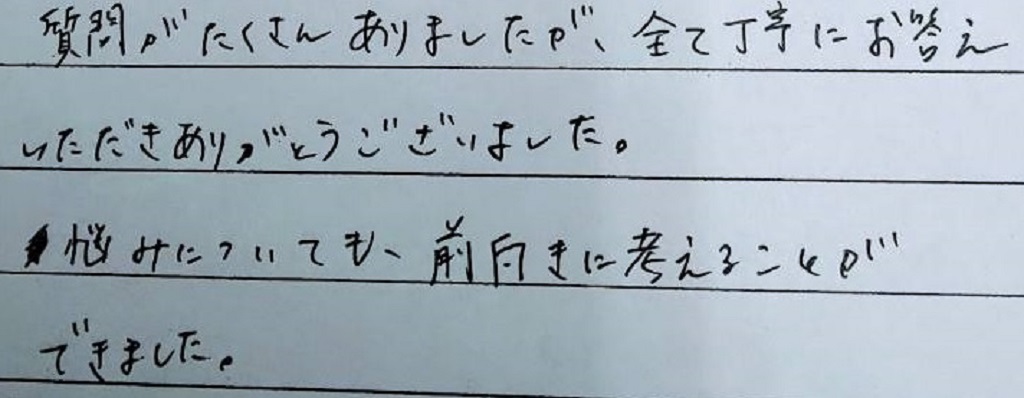 質問がたくさんありましたが、全て丁寧にお答え
いただきありがとうございました。
悩みについても、前向きに考えることが
できました。